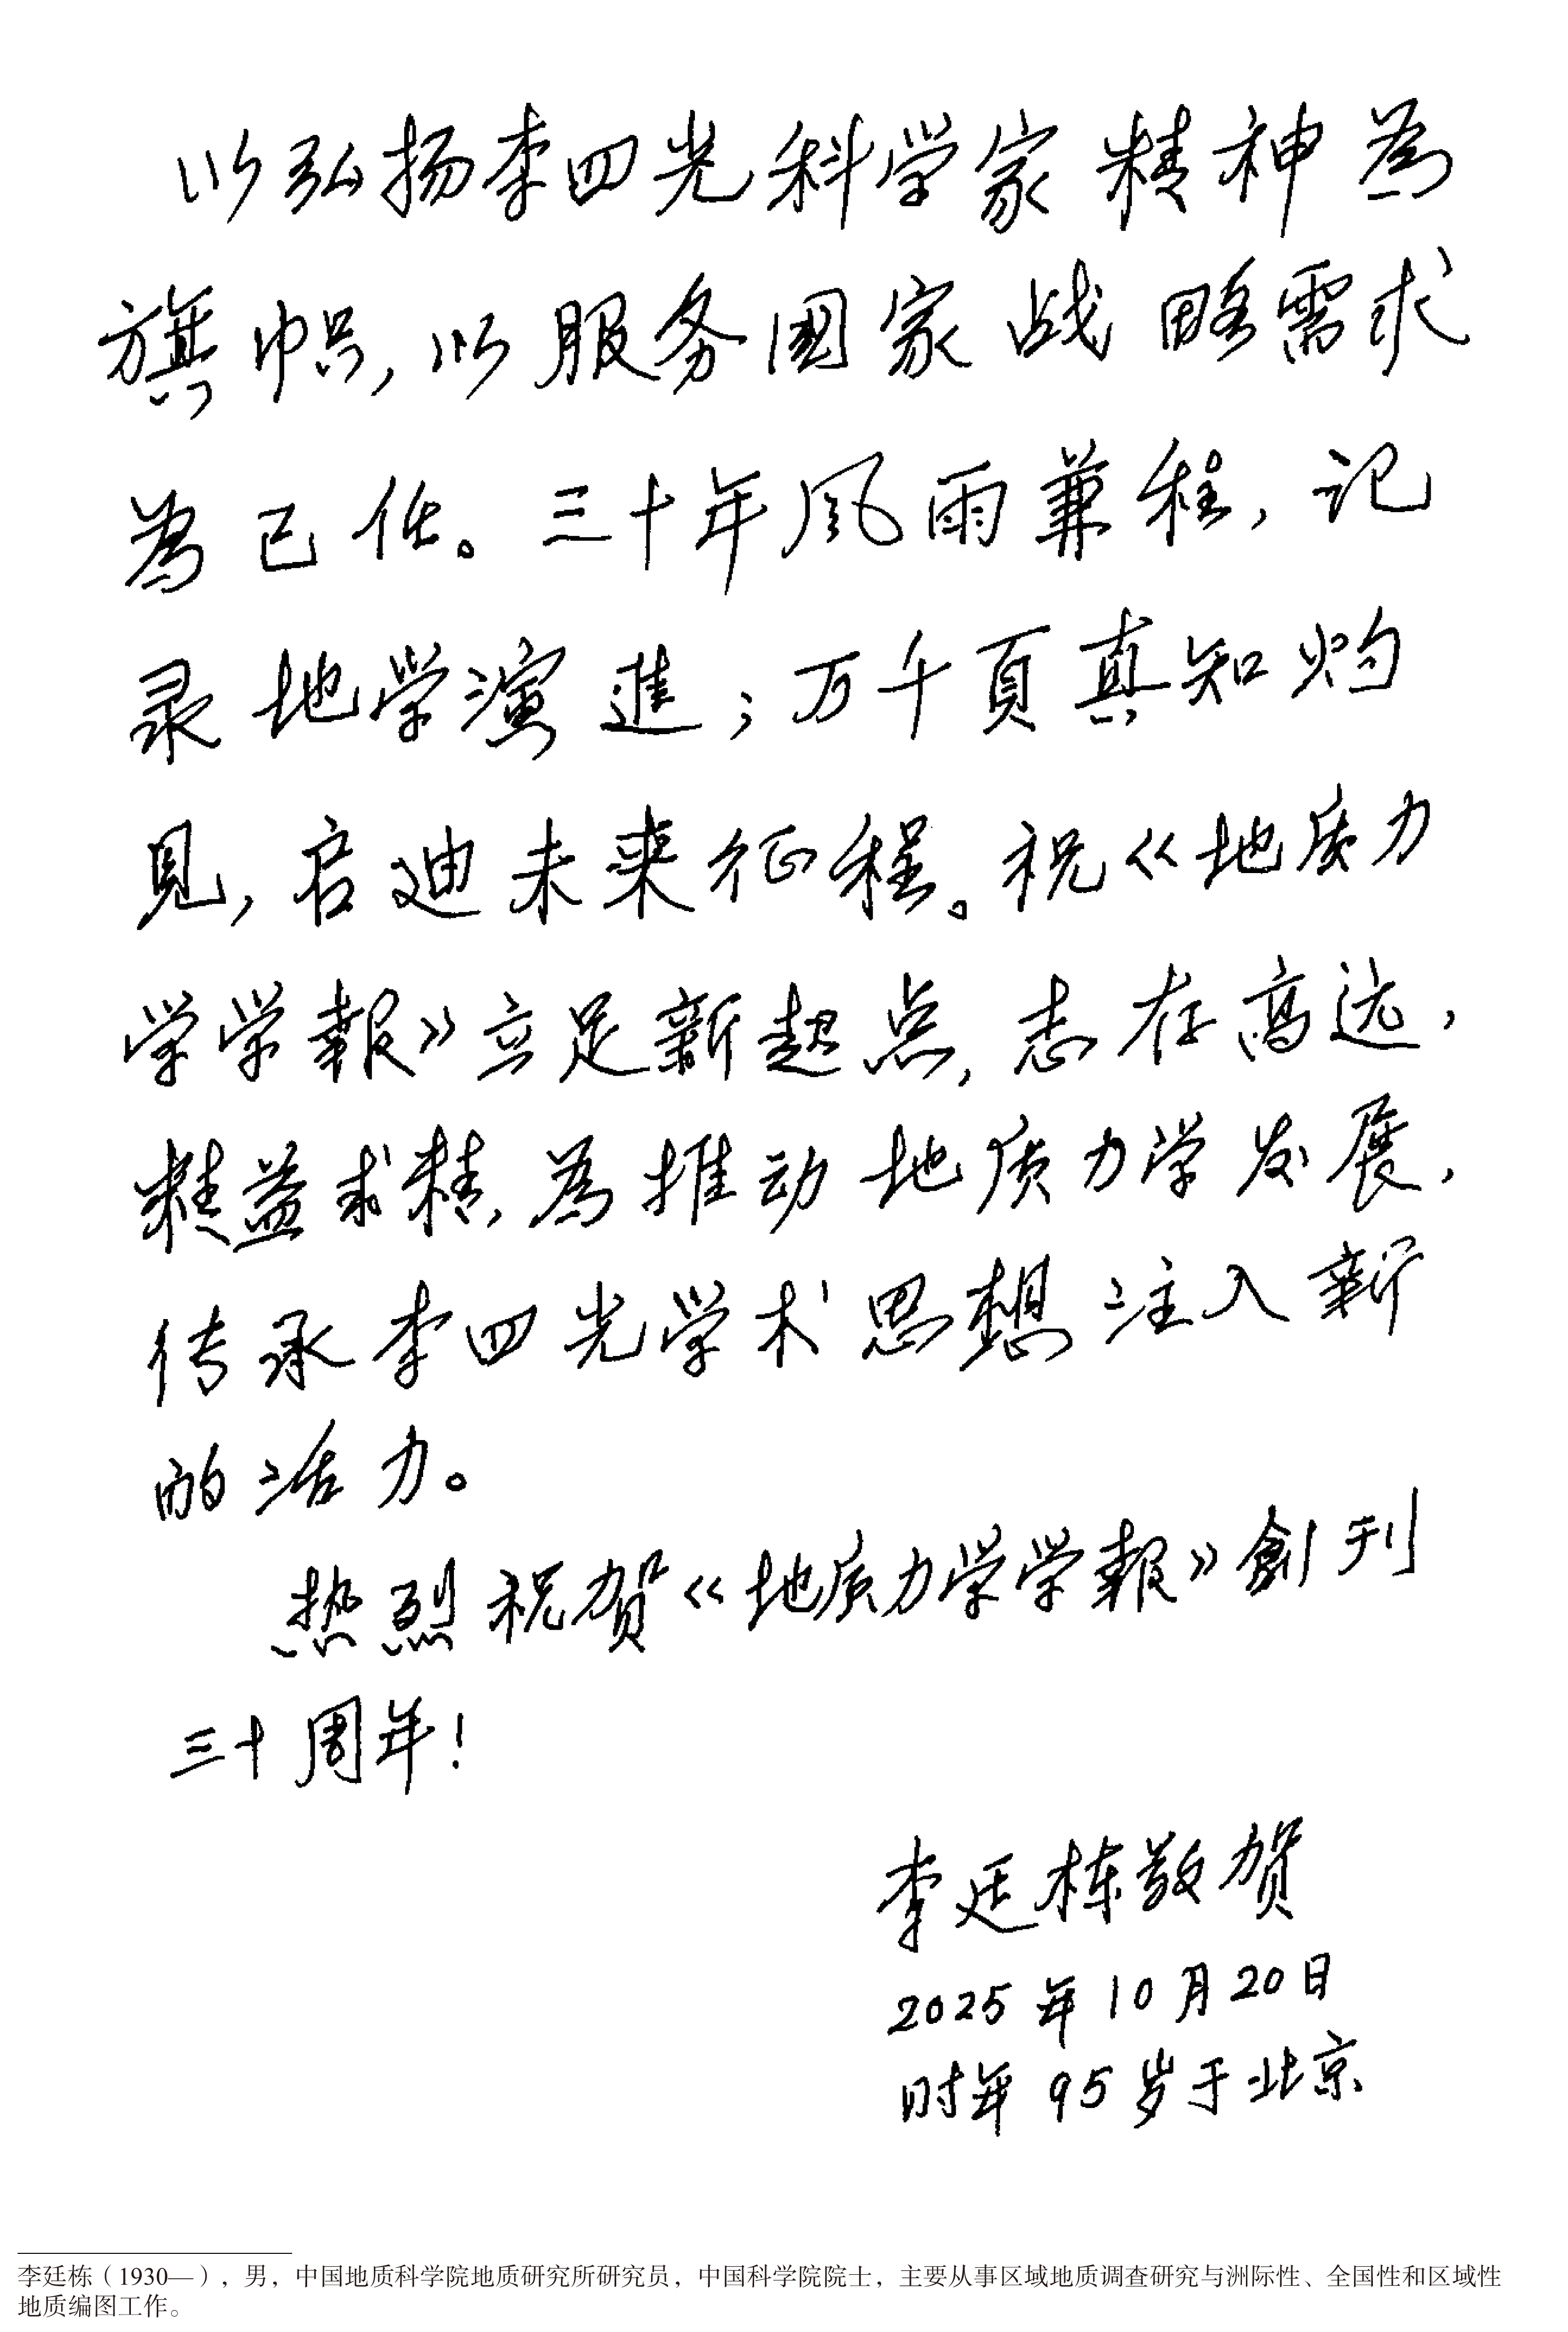 以弘扬李四光科学家精神為
旗帜,以服务國家战略需求
為己任。三十年風雨兼程,记
录地学演進;万千頁真知灼
見,启迪未来征程。祝《地质力
学学報》立足新起点,志存高远,
精益求精,為推动地质力学发展,
传承李四光学术思想注入新
的活力。
热烈祝贺《地质力学学報》創刊
三十周年!
李廷栋敬贺
2025年10月20日
时年95岁于北京
李廷栋(1930—),男,中国地质科学院地质研究所研究员,中国科学院院士,主要从事区域地质调查研究与洲际性、全国性和区域性
地质编图工作。